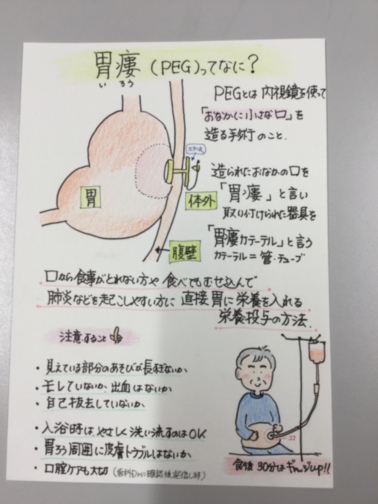 胃瘻(PEG)ってなに?
いろう
PEGとは内視鏡を使って
「おなかに小さな口」を
造る手術のこと.
造られたおなかの口を
「胃ろう」と言い
取り付けられた器具を
「胃瘻カテーテル」と言う
カテーテル=管・チューブ
胃
体外
腹壁
口から食事がとれない方や 食べてもむせ込んで
肺炎などを起こしやすい方に 直接胃に栄養を入れる
栄養投与の方法
注意すること
・見えている部分のあそびが長すぎないか
していないか、出血はないか
・自己抜去していないか
・入浴時はやさしく洗い流すのはOK
・胃ろう周囲に皮膚トラブルはないか
・口腔ケアも大切
食後30分はギャッジup!!